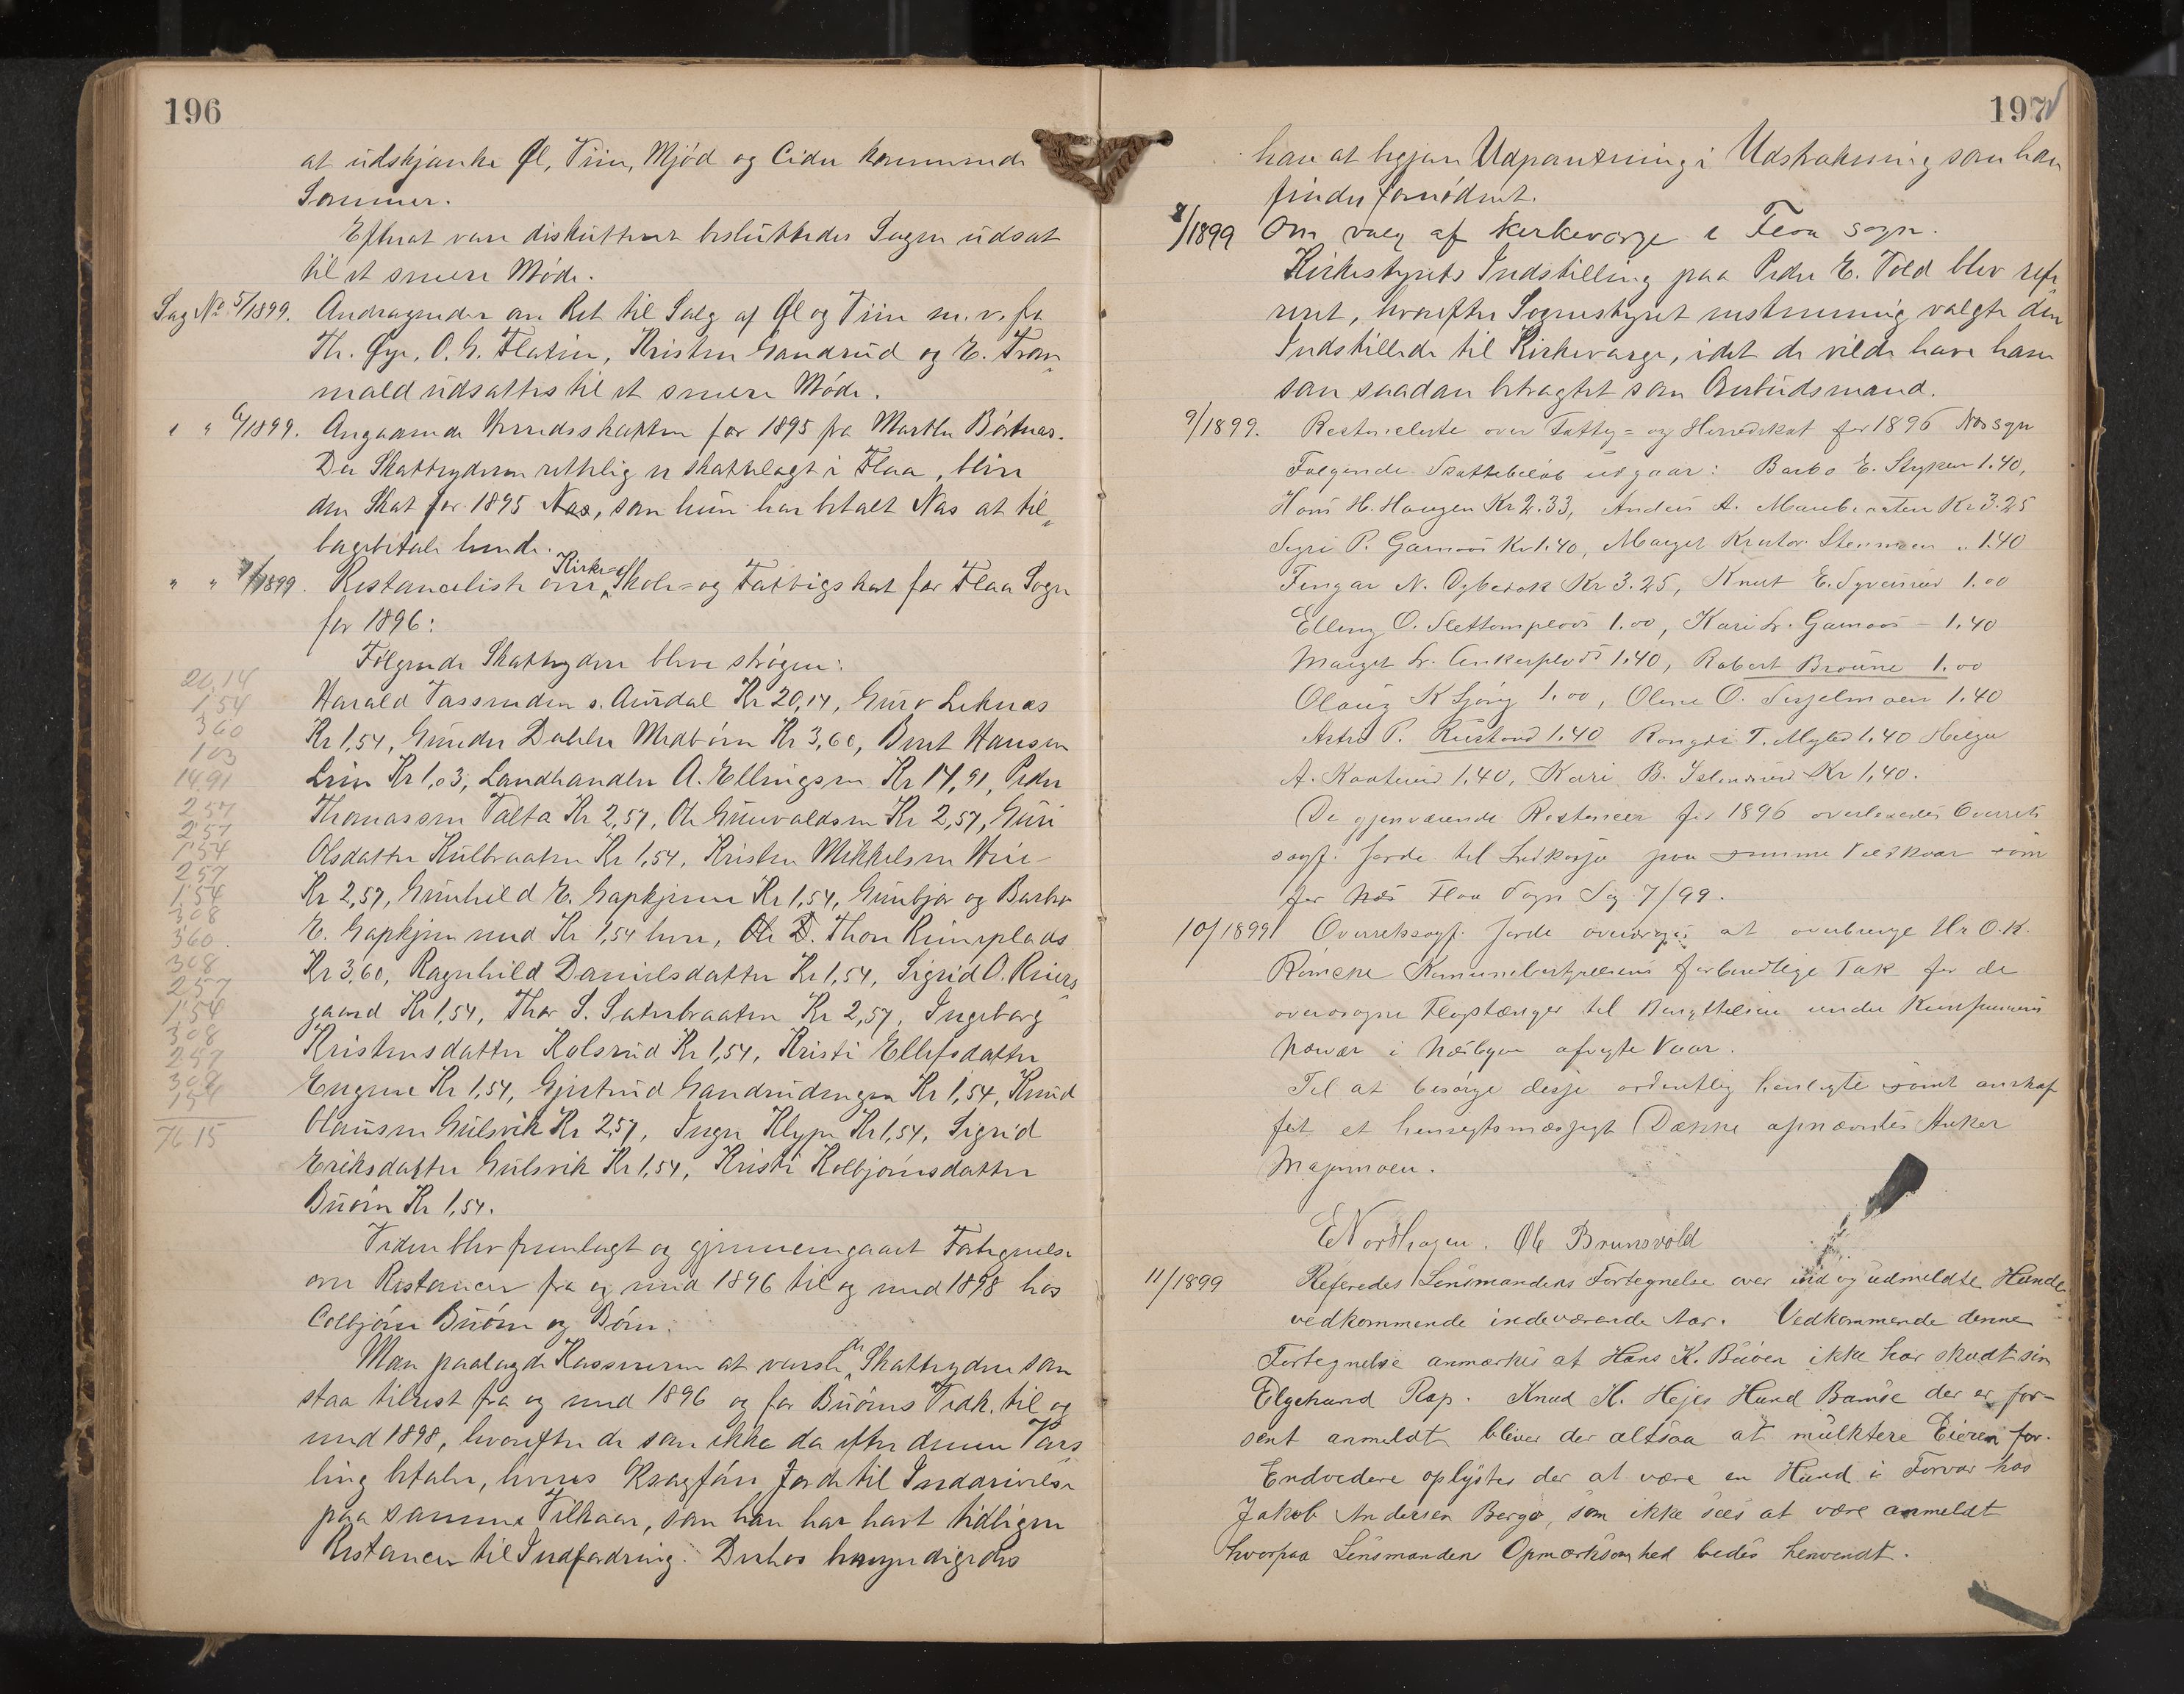 196
at udskjænke Øl, Viin, Mjød og Cider kommende
Sommer.
Efterat være diskutteret besluttedes Sagen udsat
til et senere Møde.
Sag No 5/1899. Andragender om Ret til Salg af Øl og Viin m. v. fra
Th. Øye, O. G. Flatin, Kristen Gandrud og E. Trom„
mald udsattes til et senere Møde.
" " 6/1899. Angaaende Herredsskatten for 1895 fra Marthe Børtnæs.
Da Skatteyderen rettelig er skattelagt i Flaa, bliver
den Skat for 1895 Næs, som hun har betalt Næs at til„
bagebetale hende.
" " 7/1899. Restanceliste over Kirke= Skole= og Fattigskat for Flaa Sogn
for 1896:
Følgende Skatteydere bleve strøgen:
20,14
1,54
3,60
1,03
14,91
2,57
2,57
1,54
2,57
1,54
3,08
3,60
3,08
2,57
1,54
3,08
2,57
3,08
1,54
76.15
Harald Vassenden s. Aurdal Kr 20,14, Guro Leknæs
Kr 1,54, Gunder Døhlen Medbøen Kr 3,60, Bent Hansen
Lein Kr 1,03, Landhandler A. Ellingsen Kr 14,91, Peder
Thomassen Valta Kr 2,57, Ole Gunvaldsen Kr 2,57, Guri
Olsdatter Kulbraaten Kr 1,54, Kristen Mikkelsen
Kr 2,57, Gunhild E. Gapkjern Kr 1,54, Gunbjør og Barbro
E. Gapkjern med Kr 1,54 hver, Ole D. Thon Ruuseplads
Kr 3,60, Ragnhild Danielsdatter Kr 1,54, Sigrid O. Ruus„
gaard Kr 1,54, Thor S. Sæterbraaten Kr 2,57, Ingeborg
Kristensdatter Kolsrud Kr 1,54, Kristi Ellefsdatter
Engene Kr 1,54, Gjertrud Gandrudengen Kr 1,54, Knud
Olausen Gulsvik Kr 2,57, Inger Klype Kr 1,54, Sigrid
Eriksdatter Gulsvik Kr 1,54, Kristi Kolbjørnsdatter
Buøen Kr 1,54.
Videre blev fremlagt og gjennemgaaet Fortegnelse
over Restancer fra og med 1896 til og med 1898 hos
Colbjørn Buøen og Børn.
Man paalagde Kassereren at varsle de Skatteydere som
staa tilrest fra og med 1896 og for Buøens Vedk. til og
med 1898, hvorefter de som ikke da efter denne Vars„
ling betaler, hvis Ksagfører Jorde til Inddrivelse
paa samme Vilkaar, som han har havt tidligere
Restancer til Indfordring. Derhos bemyndigedes
197
han at begjære Udpantning i Udstrækning som han
finder fornødent.
8/1899 Om valg af kirkeværge i Flaa sogn.
Kirkestyrets Indstilling paa Peder E. Told blev refe„
reret, hvorefter Sognestyret enstemmig valgte den
Indstillede til Kirkeværge, idet de vilde have ham
som saadan betragtet som Ombudsmand.
9/1899. Restanceliste over Fattig= og Herredskat for 1896 Næs sogn
Følgende Skattebeløb udgaar: Barbo E. Stryken 1.40,
Hans H. Haugen Kr 2.33, Anders A. Kr 3.25
Sigri P. Garnaas Kr 1.40, Marget Kristor. Stenmoen " 1.40
Fingar N. Kr 3.25, Knut E. 1.00
Elling O. 1.00, Kari L. Garnaas — 1.40
Marget L. Ankerplads 1.40, Robert Broune 1.00
Olaug K Sjong 1.00, Olene O. 1.40
Astri P. Rustand 1.40 Rangdi T. 1.40 Helga
A. 1.40, Kari B. Kr 1,40.
De gjenværende Restancer for 1896 overlevedes Overrets
sagf. Jorde til Indkasse paa samme Vilkaar som
for Næs Flaa Sogn Sag 7/99.
10/1899 Overretssagf. Jorde at overbringe Hr O. K.
Kommunebestyrelsens forbindtlige Tak for de
oversogne til Benyttelse under
i Næsbyen afvigte Vaar.
Til at besørge disse ordentlig henlagte samt anskaf
fet et hensigtsmæssigt Dække opnævntes Anker
Majermoen.
E Nordhagen. Ole Brunsvold
11/1899 Referedes Lensmandens Fortegnelse over ind og udmeldte Hunde
vedkommende indeværende Aar. Vedkommende denne
Fortegnelse anmærkes at Hans K. Buøen ikke har skudt sin
Elgehund Rap. Knud K. Hejes Hund Bamse der er for-
sent anmeldt bliver der altsaa at mulktere Eieren for.
Endvedere oplystes der at være en Hund i Forvar hos
Jakob Andersen Berge, som ikke sees at være anmeldt
hvorpaa Lensmanden Opmærksomhed bedes henvendt.